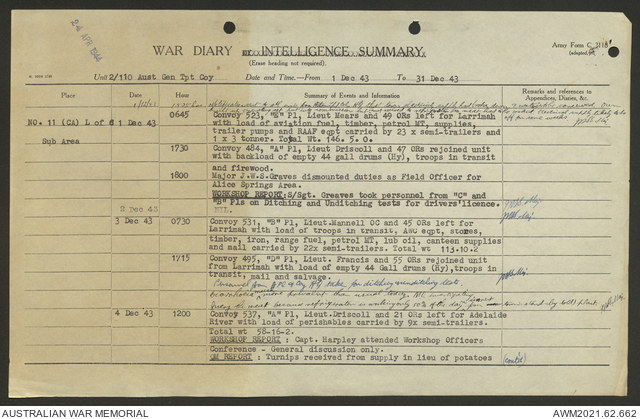 24 APR 1944
WAR DIARY or INTELLIGENCE SUMMARY
(Erase heading not required).
Army Form C.2118
(adapted)
Unit 2/110 Aust Gen Tpt Coy
Date and Time—From 1 Dec 43 To 31 Dec 43
Place Date Hour Summary of Events and Information References to Appendices, Diaries, &c.
NO. 11 (CA) L of C
Sub Area
1 Dec 43 0645 Convoy 523, "E" Pl, Lieut Mears and 49 ORs left for Larrimah
with load of aviation fuel, timber, petrol MT, supplies,
trailer pumps and RAAF eqpt carried by 23 x semi-trailers and
1 x 3 tonner. Total Wt. 146. 5. 0.
1730 Convoy 484, "A" Pl, Lieut Driscoll and 47 ORs rejoined unit
with backload of empty 44 gall drums (Hy), troops in transit
and firewood.
1800 Major J.W.S.Graves dismounted duties as Field Officer for
Alice Springs Area.
WORKSHOP REPORT: S/Sgt. Greaves took personnel from "C" and
"B" Pls on Ditching and Unditching tests for drivers' licence.
2 Dec 43 NIL.
3 Dec 43 0730 Convoy 531, "B" Pl, Lieut.Mannell OC and 45 ORs left for
Larrimah with load of troops in transit, AWC eqpt, stores,
timber, iron, range fuel, petrol MT, lub oil, canteen supplies
and mail carried by 22x semi-trailers. Total wt 113.10.2
1715 Convoy 495, "D" Pl, Lieut. Francis and 55 ORs rejoined unit
from Larrimah with load of empty 44 Gall drums (Hy),troops in
transit, mail and salvage.
4 Dec 43 1200 Convoy 537, "A" Pl, Lieut.Driscoll and 21 ORs left for Adelaide
River with load of perishables carried by 9x semi-trailers.
Total wt 58-16-2.
WORKSHOP REPORT : Capt. Harpley attended Workshop Officers
Conference - General discussion only.
QM REPORT : Turnips received from supply in lieu of potatoes
(cont'd)
AUSTRALIAN WAR MEMORIAL
AWM2021.62.662